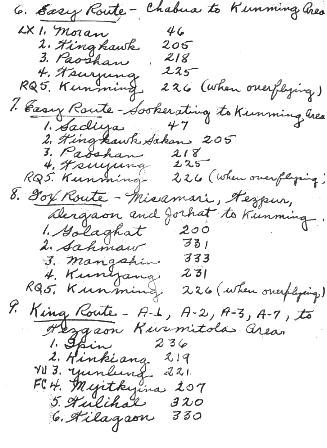 6. Easy Route - Chabua to Kunming Area
LX 1. Moran 46
2. Hinghawk 205
3. Paoshan 218
4. Tsuyung 225
RQ 5. Kunming 226 (when overflying)
7. Easy Route - Sookerating to Kunming Area
1. Sadiya 47
2. Hinghawk Sakan 205
3. Paoshan 218
4. Tsuyung 225
RQ5. Kunming 226 (when overflying)
8. Fox Route - Misamari, Tezpur,
Dergaon and Jorhat to Kunming.
1. Golaghat 200
2. Sahmaw 331
3. Mangshih 333
4. Kunyang 231
RQ5. Kunming 226 (when overflying)
9. King Route - A-1, A-2, A-3, A-7, to
Tezgaon Kurmitola Area
1. 236
2. Hinkiang 219
YU 3. Yunlung 221
FC 4. Myitkyina 207
5. Hulihal 320
6. Hilagaon 330